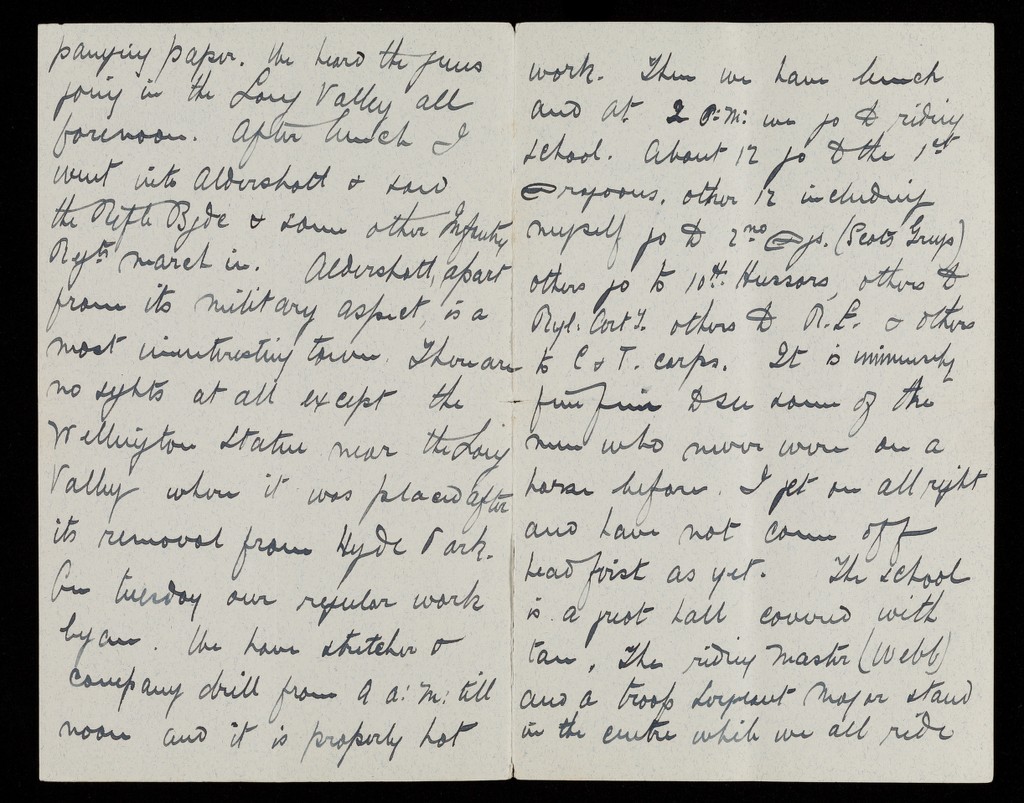 panying paper. We heard the guns
going in the Long Valley all
forenoon. After lunch I
went into Aldershott & saw
the Rifle Bgde & some other Infantry
Regts march in. Aldershott, apart
from its military aspect, is a
most uninteresting town. There are
no sights at all except the
Wellington statue near the Long
Valley where it was placed after
its removal from Hyde Park.
On tuesday our regular work
began. We have stretcher &
company drill from 9 a:m: till
noon and it is properly hot
work. Then we have lunch
and at 2 P:M: we go to riding
school. About 12 go to the 1st
Dragoons, other 12 including
myself go to 2nd Dgs. (Scots Greys)
others go to 10th Hussars, others to
Ryl. Art y. others to R.E. & others
to C & T. corps. It is immensely
fine fun to see some of the
men who never were on a
horse before. I get on all right
and have not come off
head first as yet. The school
is a great hall covered with
tan. The riding master (Webb)
and a troop Sergeant Major stand
in the centre while we all ride